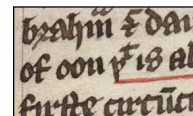 brahim̄ & dai
of oon p̱t is al
firste circūc